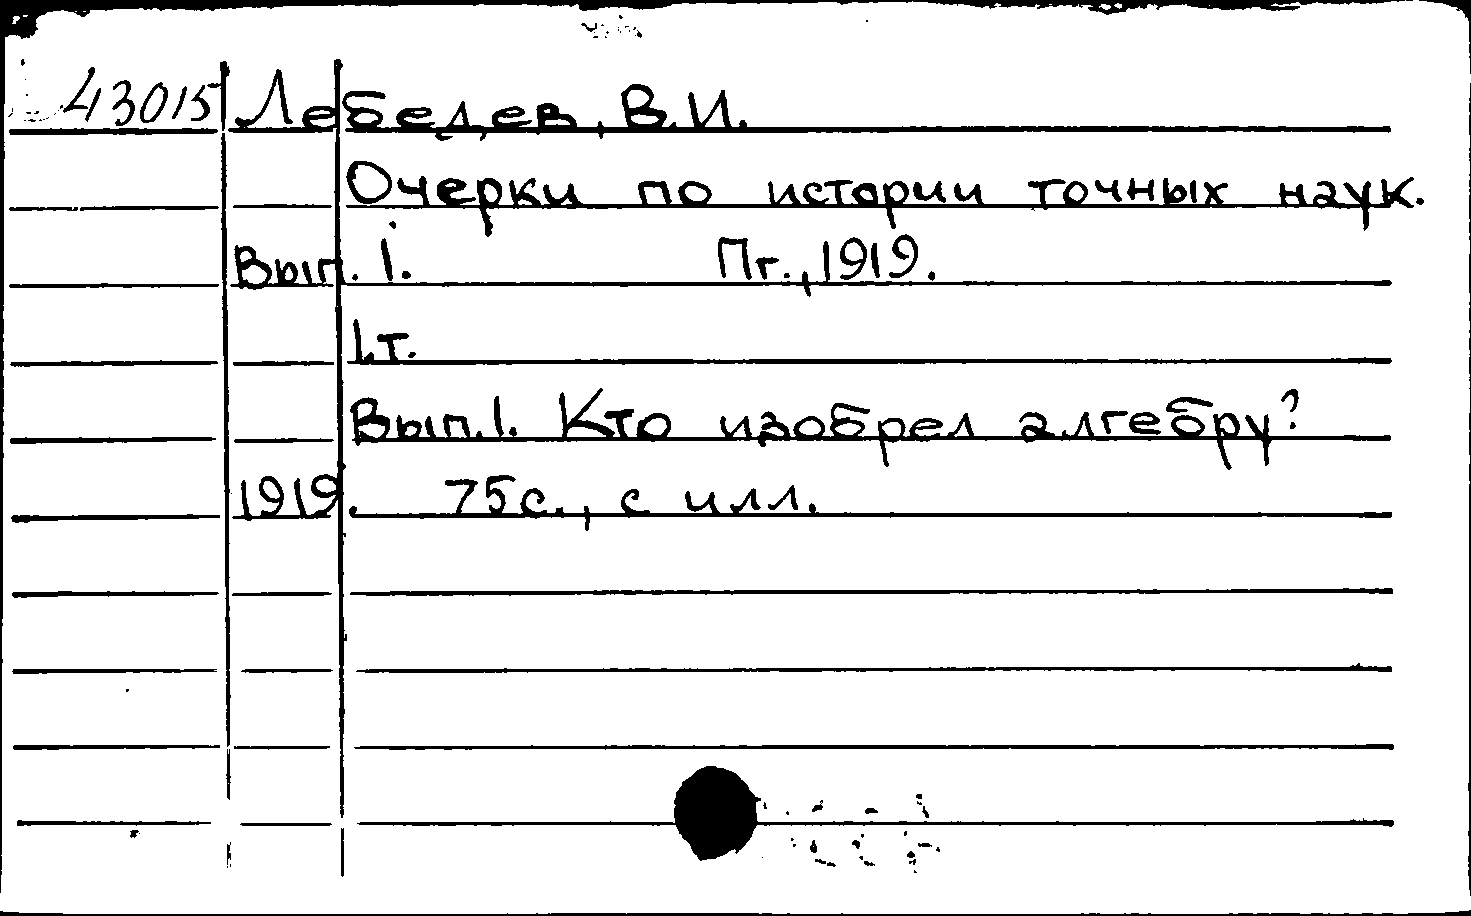 43015 Лебедев, В.И.
Очерки по истории точных наук.
Вып. I. Пг., 1919.
1.т.
Вып.1. Кто изобрел алгебру?
1919. 75с., с илл.